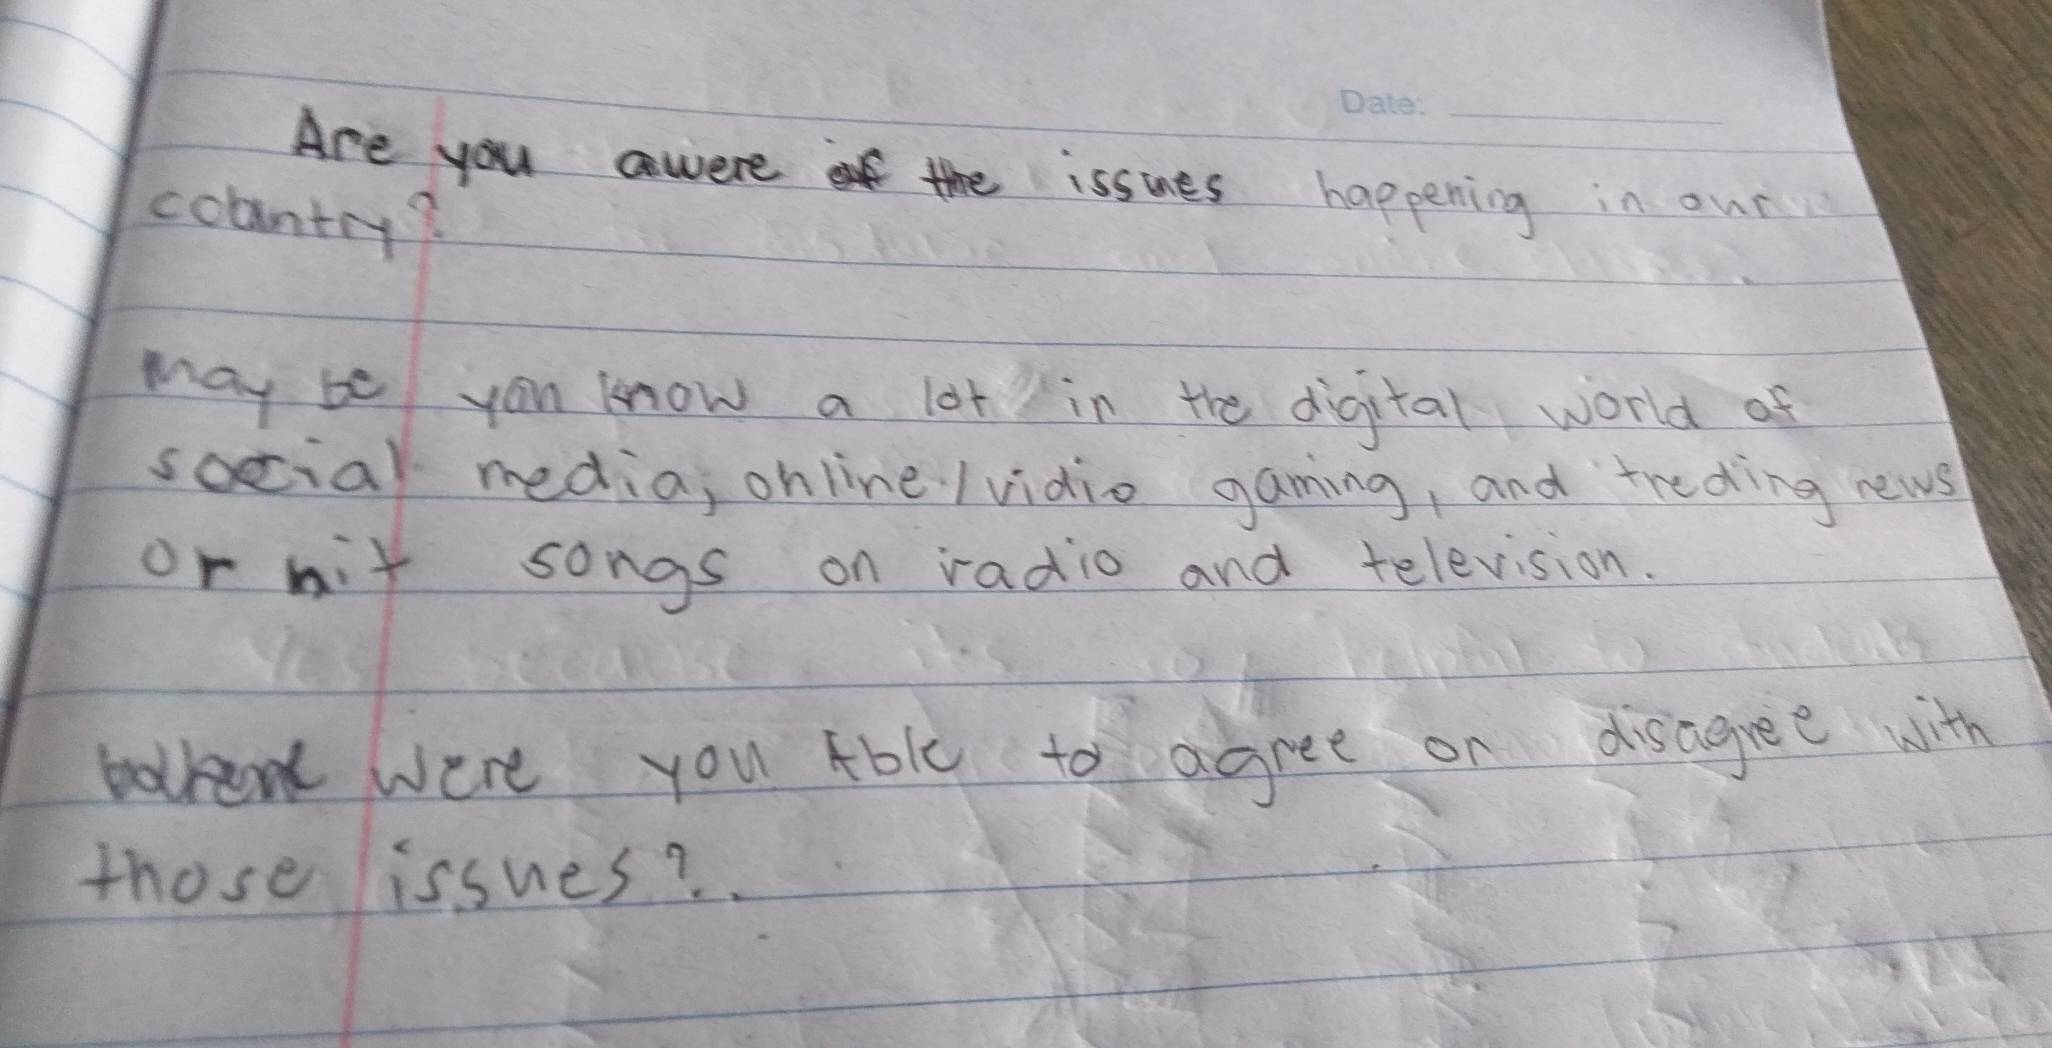 Date:
Are you awere of the issues happening in our
country?
may be you know a lot in the digital world of
social media, online / vidio gaming, and treding news
or hit songs on radio and television.
were you Able to agree or disagree with
those issues?.